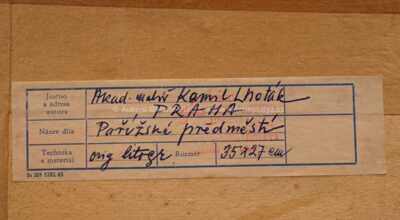 Jméno a adresa autora Akad. malíř Kamil Lhoták
PRAHA
Název díla Pařížské předměstí
Technika a materiál orig litogr. Rozměr 35x27 cm